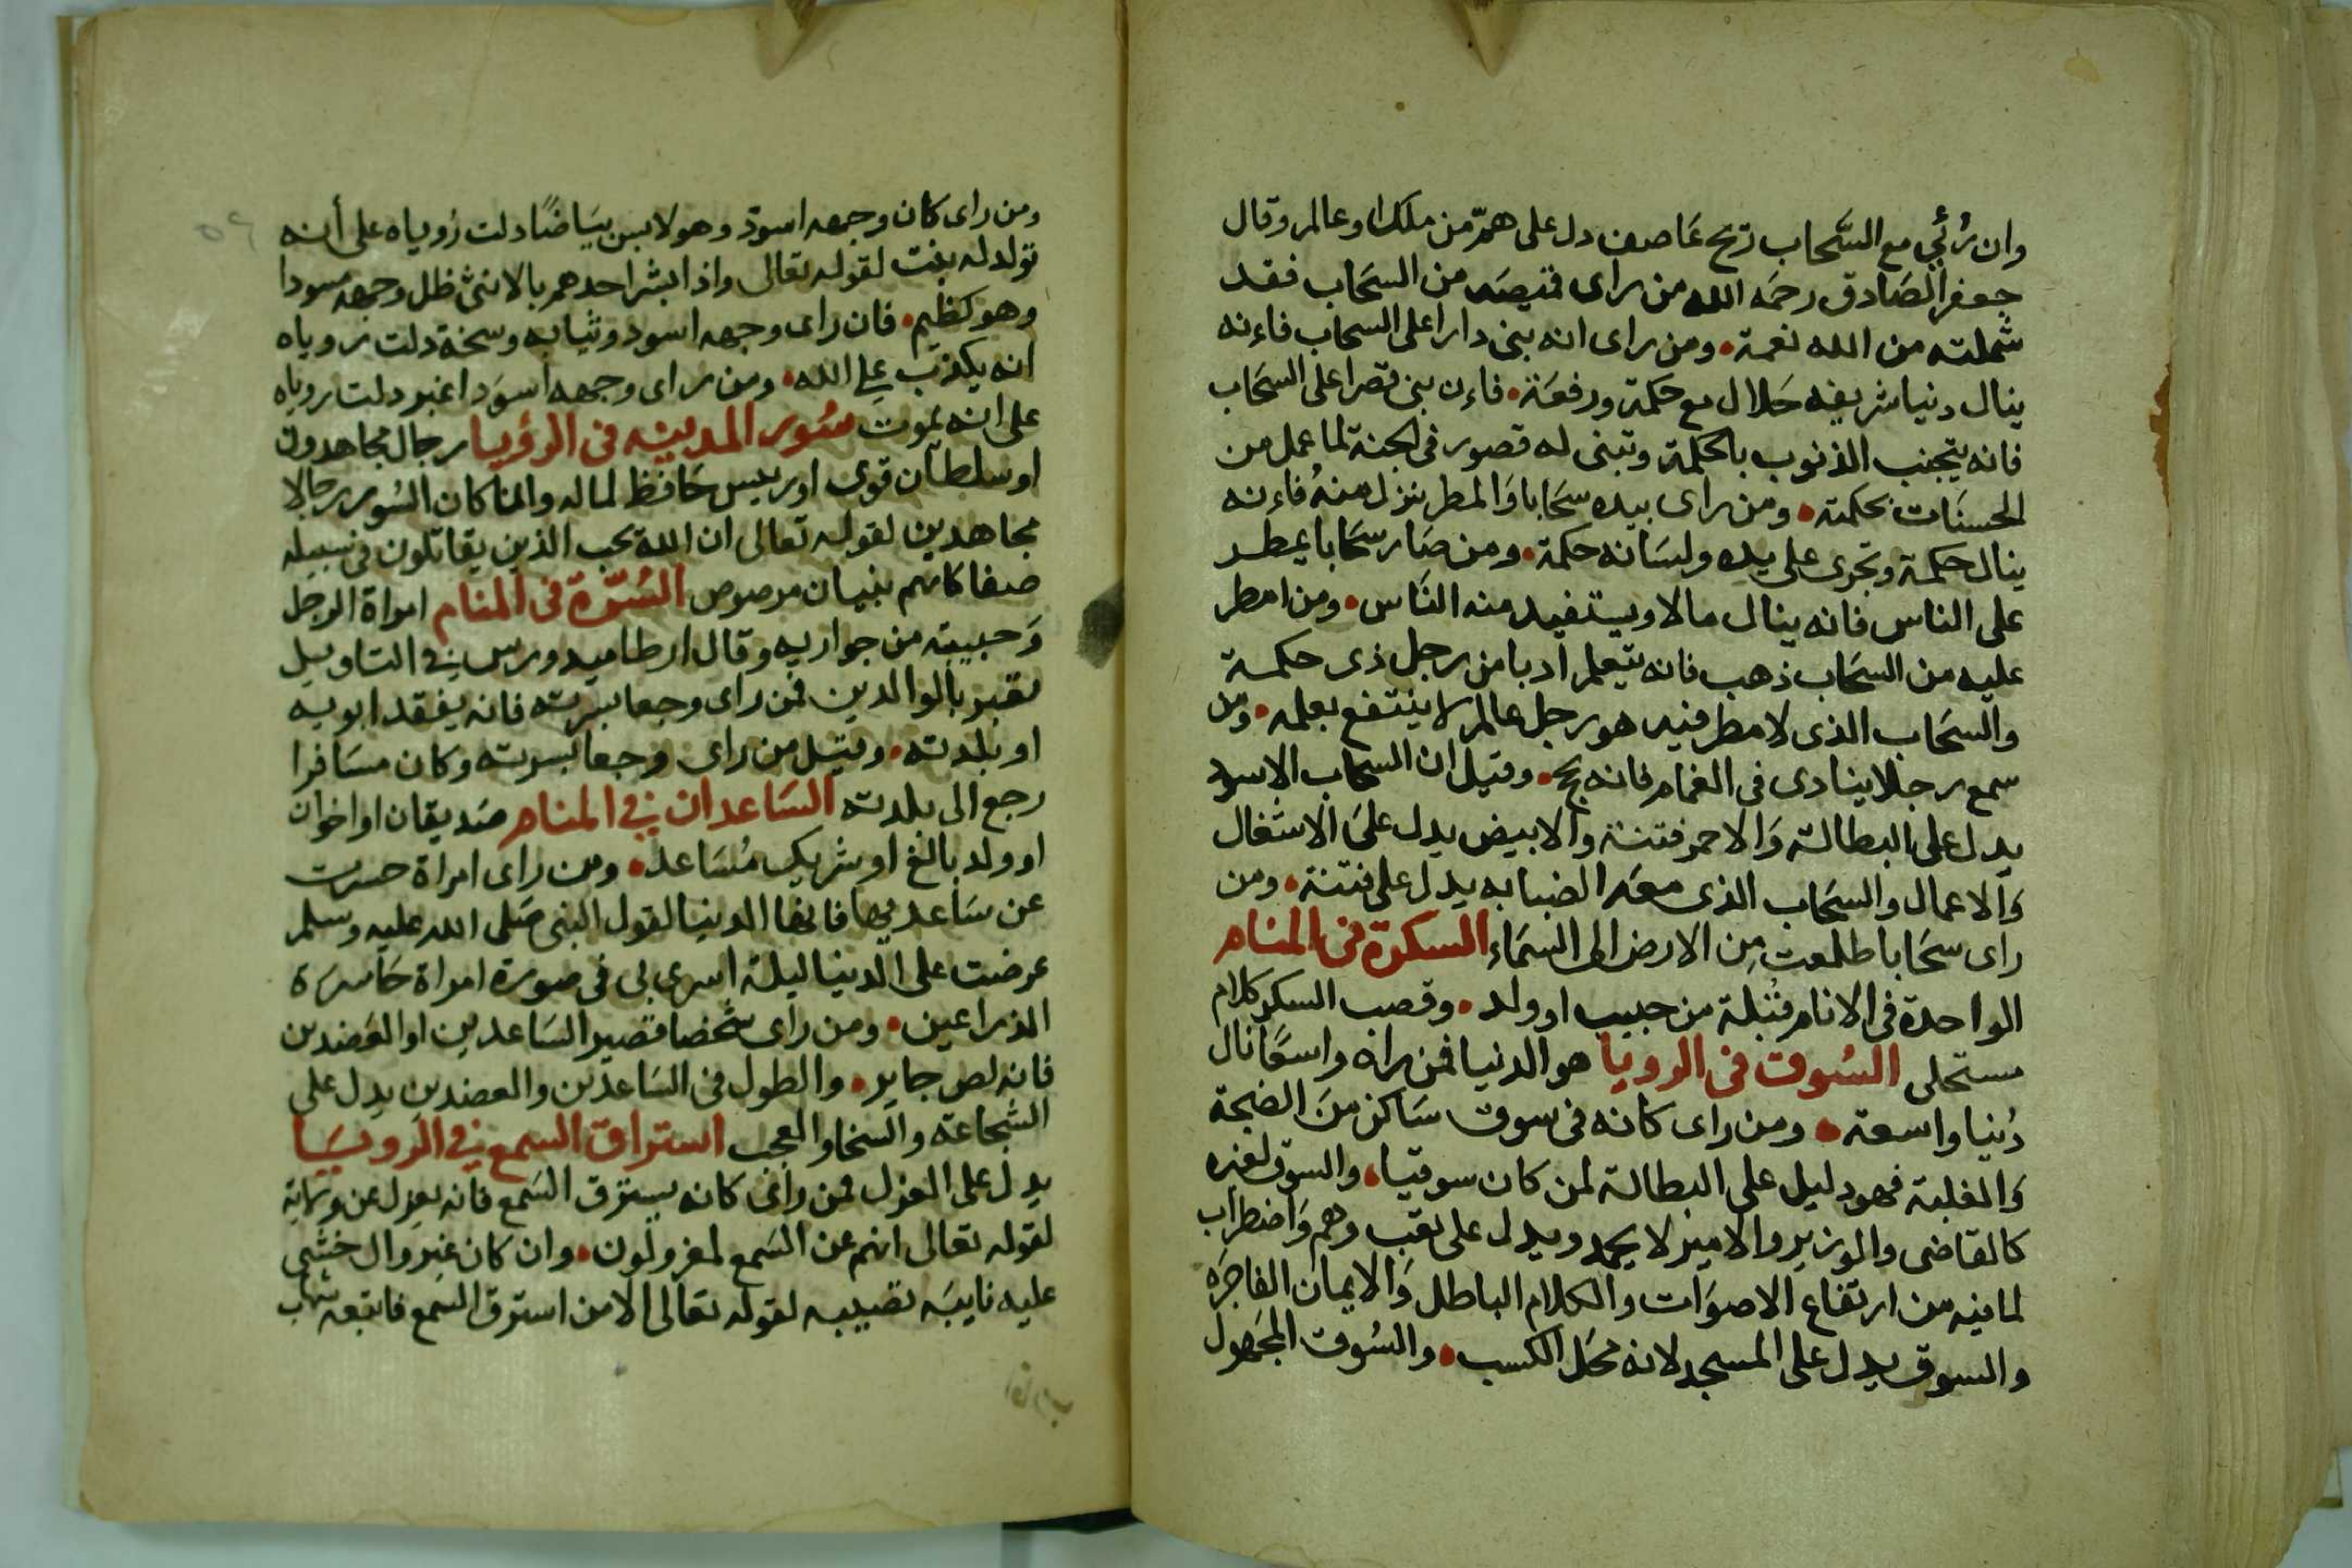 وان رُئي مع السَّحاب ريح عَاصف دل على همّ من ملك او عالم وقال
جعفر الصَادق رحمَه الله من راى قميصَه من السَحاب فقد
شملته من الله نعمة • ومن راى انه بنى دارا على السحاب فاءنه
ينال دنيا شريفه حَلال مع حكمة ورفعَة • فاءن بنى قصرا على السَحَاب
فانه يتجنب الذنوب بالحكمة وتبنى له قصور فى الجنة لما عمل من
الحسنَات بحكمته • ومن راى بيده سَحَابا وَالمطر ينزل منهُ فاءنه
ينال حكمة وتجرى على يده ولسَانه حكمة • ومن صَار سَحَابا يمطر
على الناس فانه ينال مالا ويستفيد منه النَاس • ومن امطر
عليه من السَحَاب ذهب فانه يتعلم ادبا من رجل ذى حكمة
والسَحَاب الذى لا مطر فيه هو رجل عالم لا ينتفع بعلمه • ومن
سمع رجلا ينادى فى الغمام فانه يحج • وقيل ان السحاب الاسود
يدل على البطالة وَالاحمر فتنة والابيض يدل علىَ الاشغال
وَالاعمال والسحَاب الذى معَه الضبابه يدل على فتنة • ومن
راى سحَابا طلعت مِن الارض الى السَمَاء السكرة فى المنام
الواحدة فى الانام قُبلة من حبيب او ولد • وقصب السكر كلام
مستحلى السُوق فى الرويا هو الدنيا فمن راه واسعًا نال
دُنيا واسعة • ومن راى كانه فى سوق سَاكن منَ الضجة
وَالغلبة فهو دليل على البطالة لمن كان سوقيا • والسوق لغيره
كالقاضى والوزير والامير لا يحمد ويدل على تعب وهم وَاضطراب
لما فيه من ارتفاع الاصوَات والكلام الباطل وَالايمان الفاجرَه
والسوق يدل على المسجد لانه محَل الكسب • والسُوق المجَهول
ومن راى كان وجهه اسود وهو لابس بيَاضًا دلت رُوياه على أنه
تولد له بنت لقوله تعالى واذا بشر احدهم بالانثى ظل وجهه مسودا
وهو كظيم • فان راى وجهه اسود وثيابه وسخة دلت روياه
انه يكذب على الله • ومن راى وجهه اسوَد اغبر دلت روياه
على انه يموت سُور المدينه فى الرؤيا رجال مجاهدون
او سلطان قوى او رييس حَافظ لماله وانما كان السُور رجالا
مجاهدين لقوله تعالى ان الله يحب الذين يقاتلون فى سبيله
صفا كانهم بنيان مرصوص السُرّة فى المنام امراة الرجل
وَحبيبته من جواريه وقال ارطاميدورس فى التاويل
تعبر بالوالدين فمن راى وجعا بسرته فانه يفقد ابويه
او بلدته • وقيل من راى وجعا بسرته وكان مسَافرا
رجع الى بلدته السَاعدان فى المنام صَديقان او اخوان
او ولد بالغ او شريك مُسَاعد • ومن راى امراة حسرت
عن سَاعديها فانها الدنيا لقول النبى صَلى الله عليه وسلم
عرضت على الدنيا ليلة اسرى بى فى صورة امراة حَاسرَة
الذراعين • ومن راى شخصا قصير السَاعدين او العَضدين
فانه لص جاير • والطول فى السَاعدين والعضدين يدل على
الشجاعة والسخا والعجب استراق السمع فى الرويَا
يدل على العزل فمن راى كانه يسترق السَمع فانه يعزل عن ولاية
لقوله تعالى انهم عن السَمع لمعزولون • وان كان غير وال خشى
عليه نايبَه تصيبه لقوله تعالى الا من استرق السمع فاتبعه شهاب